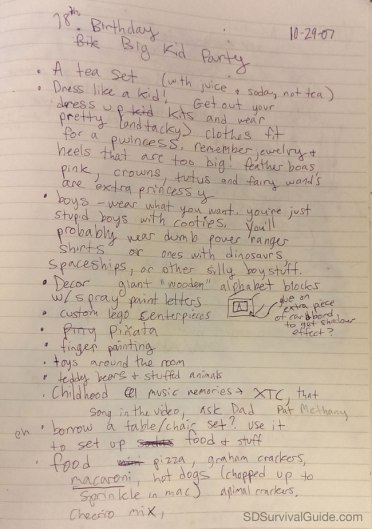 18th Birthday
10-29-07
Big Kid Party
• A tea set (with juice & soda, not tea)
• Dress like a kid! Get out your
dress up kits and wear
pretty (and tacky) clothes fit
for a pwincess. remember, jewelry &
heels that are too big! feather boas,
pink, crowns, tutus and fairy wands
are extra princessy
• boys - wear what you want. you're just
stupid boys with cooties. You'll
probably wear dumb power ranger
shirts or ones with dinosaurs,
spaceships, or other silly boy stuff.
• Decor - giant "wooden" alphabet blocks
w/ spray paint letters
A
glue on
extra piece
of cardboard
to get shadow
effect?
• custom lego centerpieces
• Piñata
• finger painting
• toys around the room
• teddy bears & stuffed animals
• Childhood music memories → XTC, that
song in the video, ask Dad Pat Methany
eh • borrow a table/chair set? use it
to set up food & stuff
• food pizza, graham crackers,
macaroni, hot dogs (chopped up to
sprinkle in mac) animal crackers,
cheerio mix,
SDSurvivalGuide.com